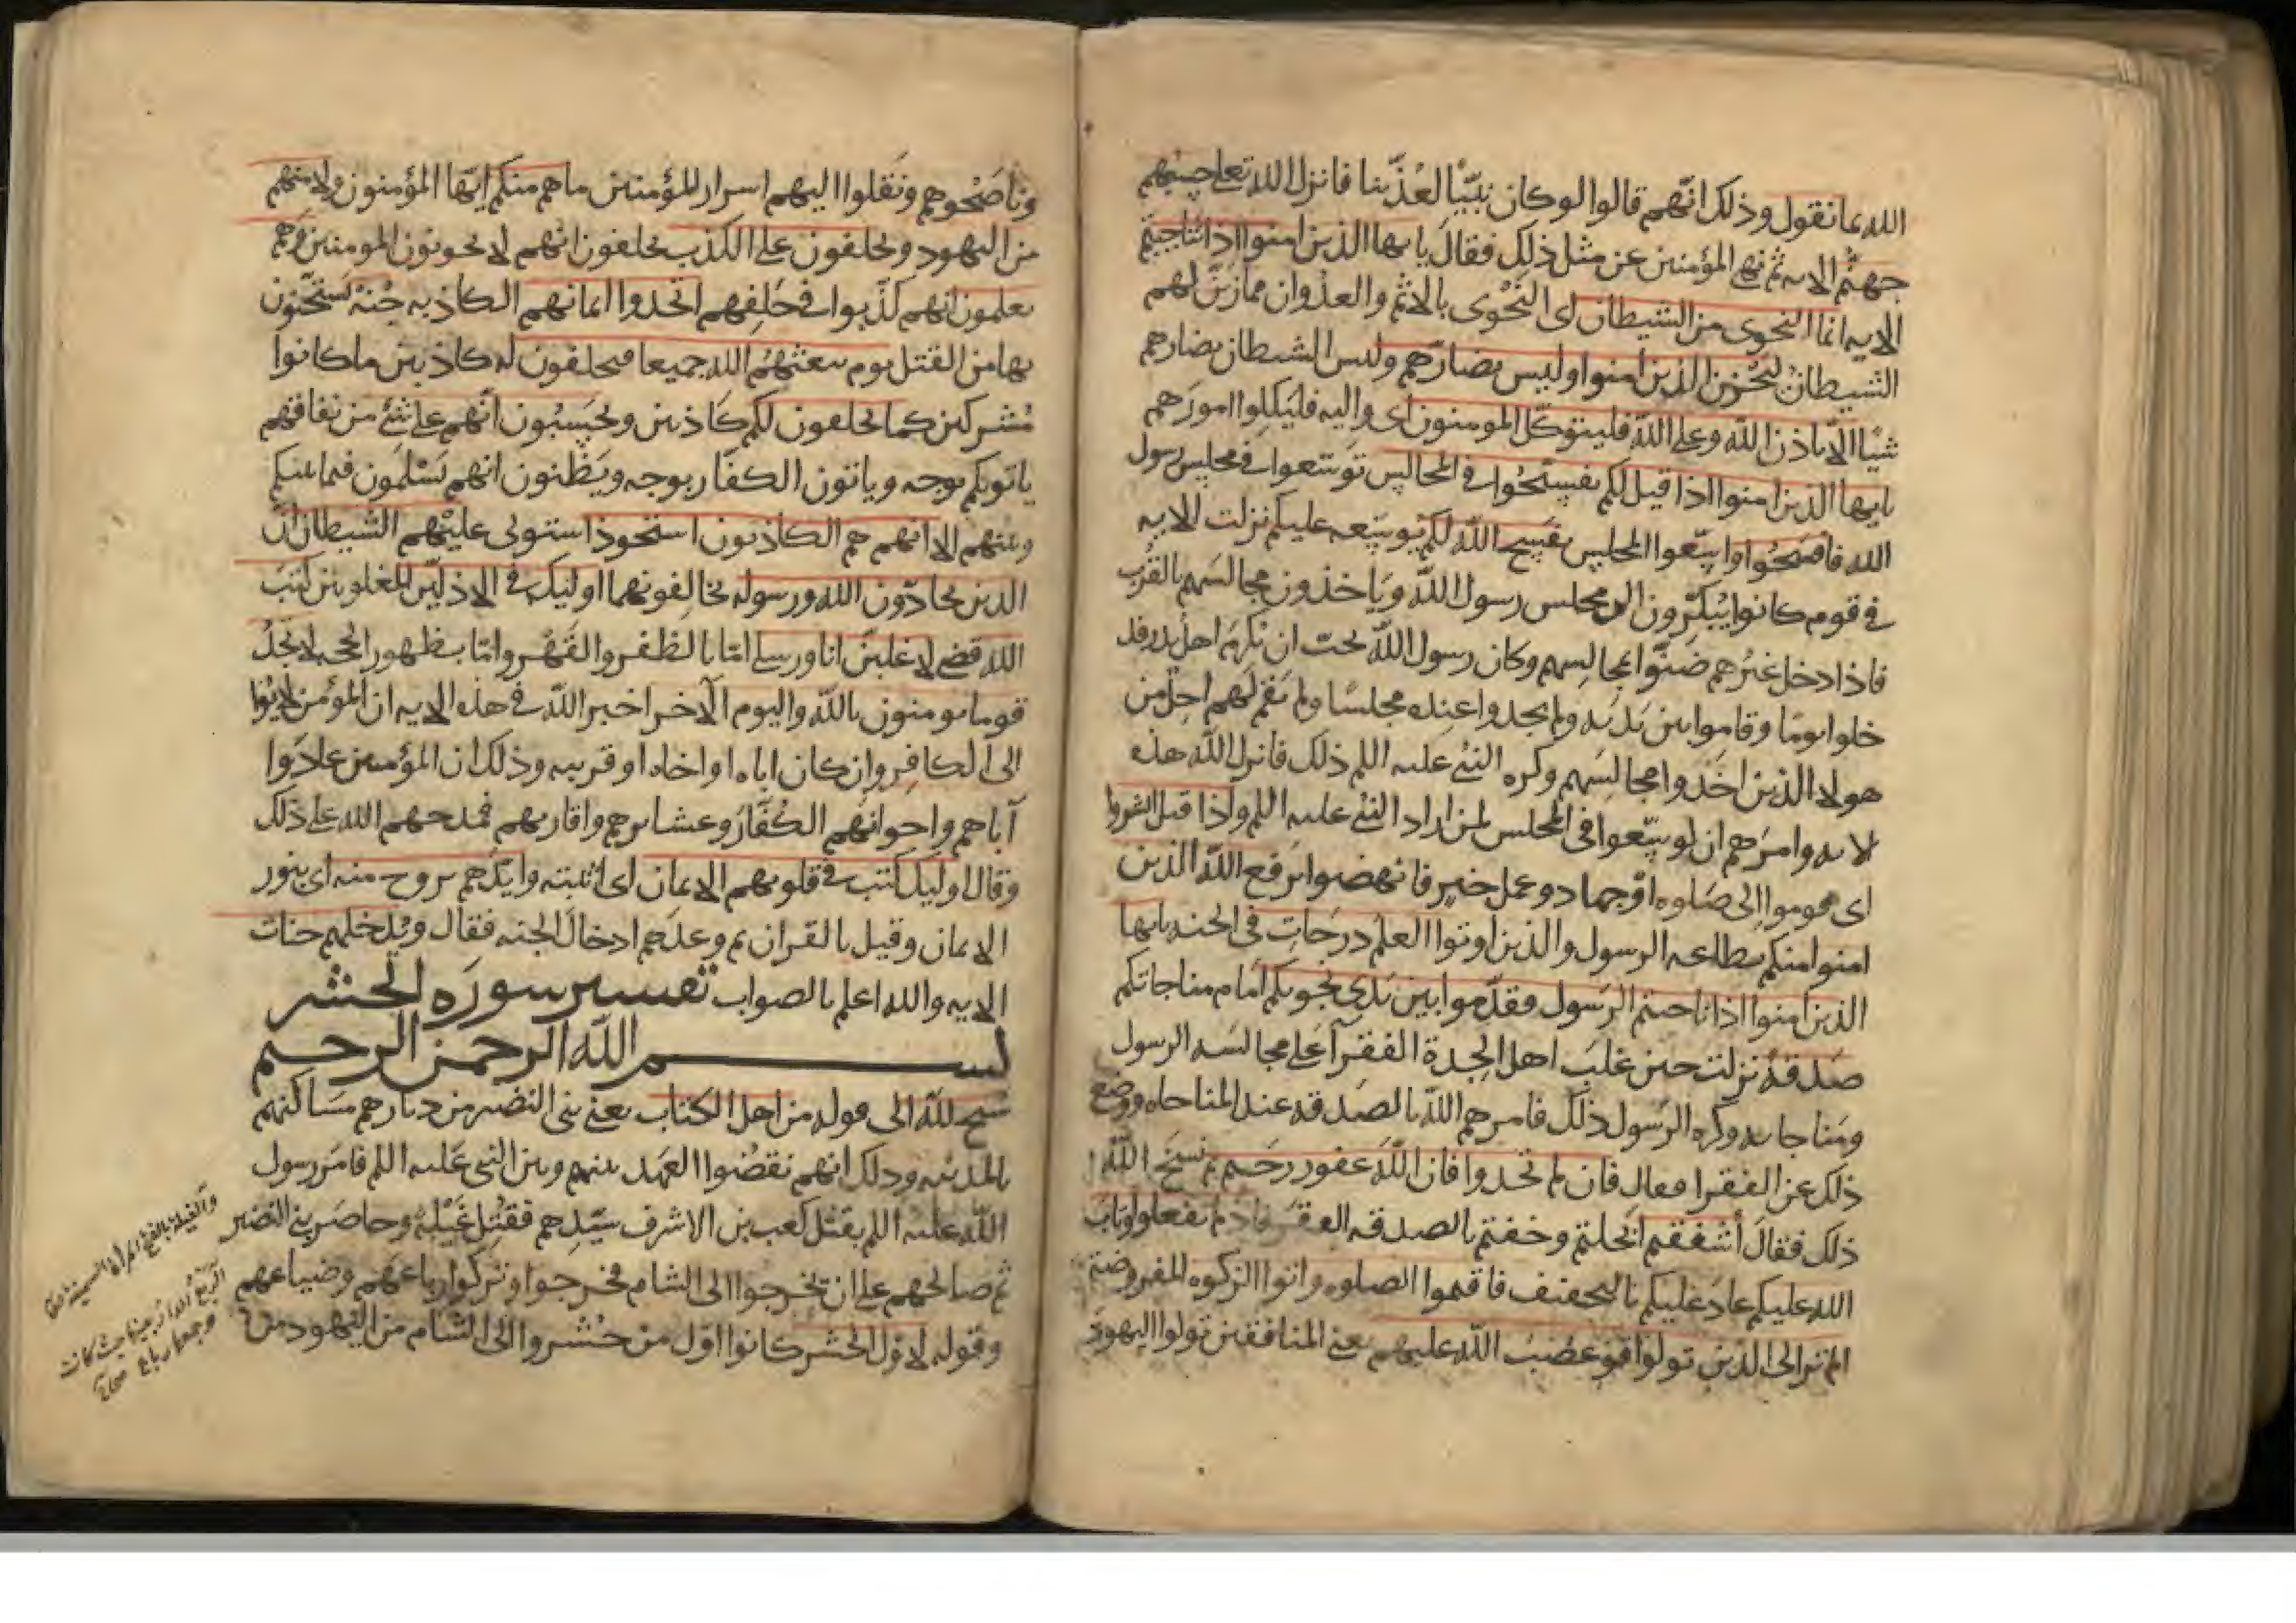 الله بما نقول وذلك انهم قالوا لو كان نبيّا لعذّبنا فانزل الله تعلى حسبهم
جهنّم الايه ثم نهى المؤمنين عن مثل ذلك فقال يايها الذين امنوا اذا تناجيتم
الايه انما النجوى من الشيطان اى النّجوى بالاثم والعدوان مما زيّن لهم
الشيطان ليحزن الذين امنوا وليس بضارّهم وليس الشيطان بضارهم
شيًا الّا باذن الله وعلى الله فليتوكّل المومنون اى واليه فليكلوا امورهم
يايها الذين امنوا اذا قيل لكم تفسّحوا فى المجالس توسّعوا فى مجلس رسول
الله فافسحوا اوسّعوا المجلس يفسح الله لكم يوسّعه عليكم نزلت الايه
فى قوم كانوا يبكّرون الى مجلس رسول الله وياخذون مجالسهم بالقرب
فاذا دخل غيرهم ضنّوا بمجالسهم وكان رسول الله يحبّ ان يكرم اهل بدر فد
خلوا يومًا وقاموا بين يديه ولم يجدوا عنده مجلسًا ولم يقم لهم احد من
هولا الذين اخذوا مجالسهم وكره النبى عليه اللم ذلك فانزل الله هذه
الايه وامرهم ان يوسّعوا فى المجلس لمن اراد النبى عليه اللم واذا قيل انشزوا
اى قوموا الى صلوه او جهاد وعمل خير فانهضوا يرفع الله الذين
امنوا منكم بطاعه الرسول والذين اوتوا العلم درجات فى الجنه يايها
الذين امنوا اذا ناجيتم الرسول فقدّموا بين يدى نجويكم امام مناجاتكم
صدقة نزلت حين غلب اهل الجدة الفقرآ على مجالسه الرسول
ومناجاته وكره الرسول ذلك فامرهم الله بالصدقه عند المناجاه ووضع
ذلك عن الفقرا فقال فان لم تجدوا فان الله غفور رحيم ثم نسخ الله
ذلك فقال أشفقتم ابخلتم وخفتم بالصدقه الفقر فاذ لم تفعلوا وتاب
الله عليكم عاد عليكم بالتخفيف فاقيموا الصلوه واتوا الزكوه المفروضة
الم تر الى الذين تولوا قوما غضب الله عليهم يعنى المنافقين تولوا اليهود
وناصحوهم ونقلوا اليهم اسرار المؤمنين ما هم منكم ايّها المؤمنون ولا منهم
من اليهود ويحلفون على الكذب يحلفون انهم لا يخونون المومنين وهم
يعلمون انهم كذبوا فى حلفهم اتخذوا ايمانهم الكاذبه جنة يستجنّون
بها من القتل يوم يبعثهم الله جميعا فيحلفون له كاذبين ما كانوا
مشركين كما يحلفون لكم كاذبين ويحسبون انّهم على شئ من نفاقهم
ياتونكم بوجه وياتون الكفّار بوجه ويظنون انهم يسلمون فيما بينكم
وبينهم الا انهم هم الكاذبون استحوذ استولى عليهم الشيطان انّ
الذين يحادّون الله ورسوله يخالفونهما اوليك فى الاذلين المغلوبين كتب
الله قضى لاغلبنّ انا ورسلى امّا بالظفر والقهر وامّا بظهور الحجه لا تجد
قوما يومنون بالله واليوم الآخر اخبر الله فى هذه الايه ان المؤمن لا يوا
الى الكافر وان كان اباه او اخاه او قريبه وذلك ان المؤمنين عادوا
آباهم واخوانهم الكفّار وعشايرهم واقاربهم فمدحهم الله على ذلك
وقال اوليك كتب فى قلوبهم الايمان اى اثبته وايّدهم بروح منه اى بنور
الايمان وقيل بالقران ثم وعدهم ادخال الجنه فقال ويدخلهم جنات
الايه والله اعلم بالصواب تفسير سورة الحشر
بسم الله الرحمن الرحيم
سبح لله الى قوله من اهل الكتاب يعنى بنى النضير من ديارهم مساكنهم
بالمدينه وذلك انهم نقضوا العهد بينهم وبين النبى عليه اللم فامر رسول
الله عليه اللم بقتل كعب بن الاشرف سيّدهم فقتل غيلة وحاصر بنى النضير
ثم صالحهم على ان يخرجوا الى الشام فخرجوا وتركوا رباعهم وضياعهم
وقوله لاول الحشر كانوا اوّل من حشروا الى الشام من اليهود من
الربع الدار بعينها حيث كانت
وجمعها رباع صحاح